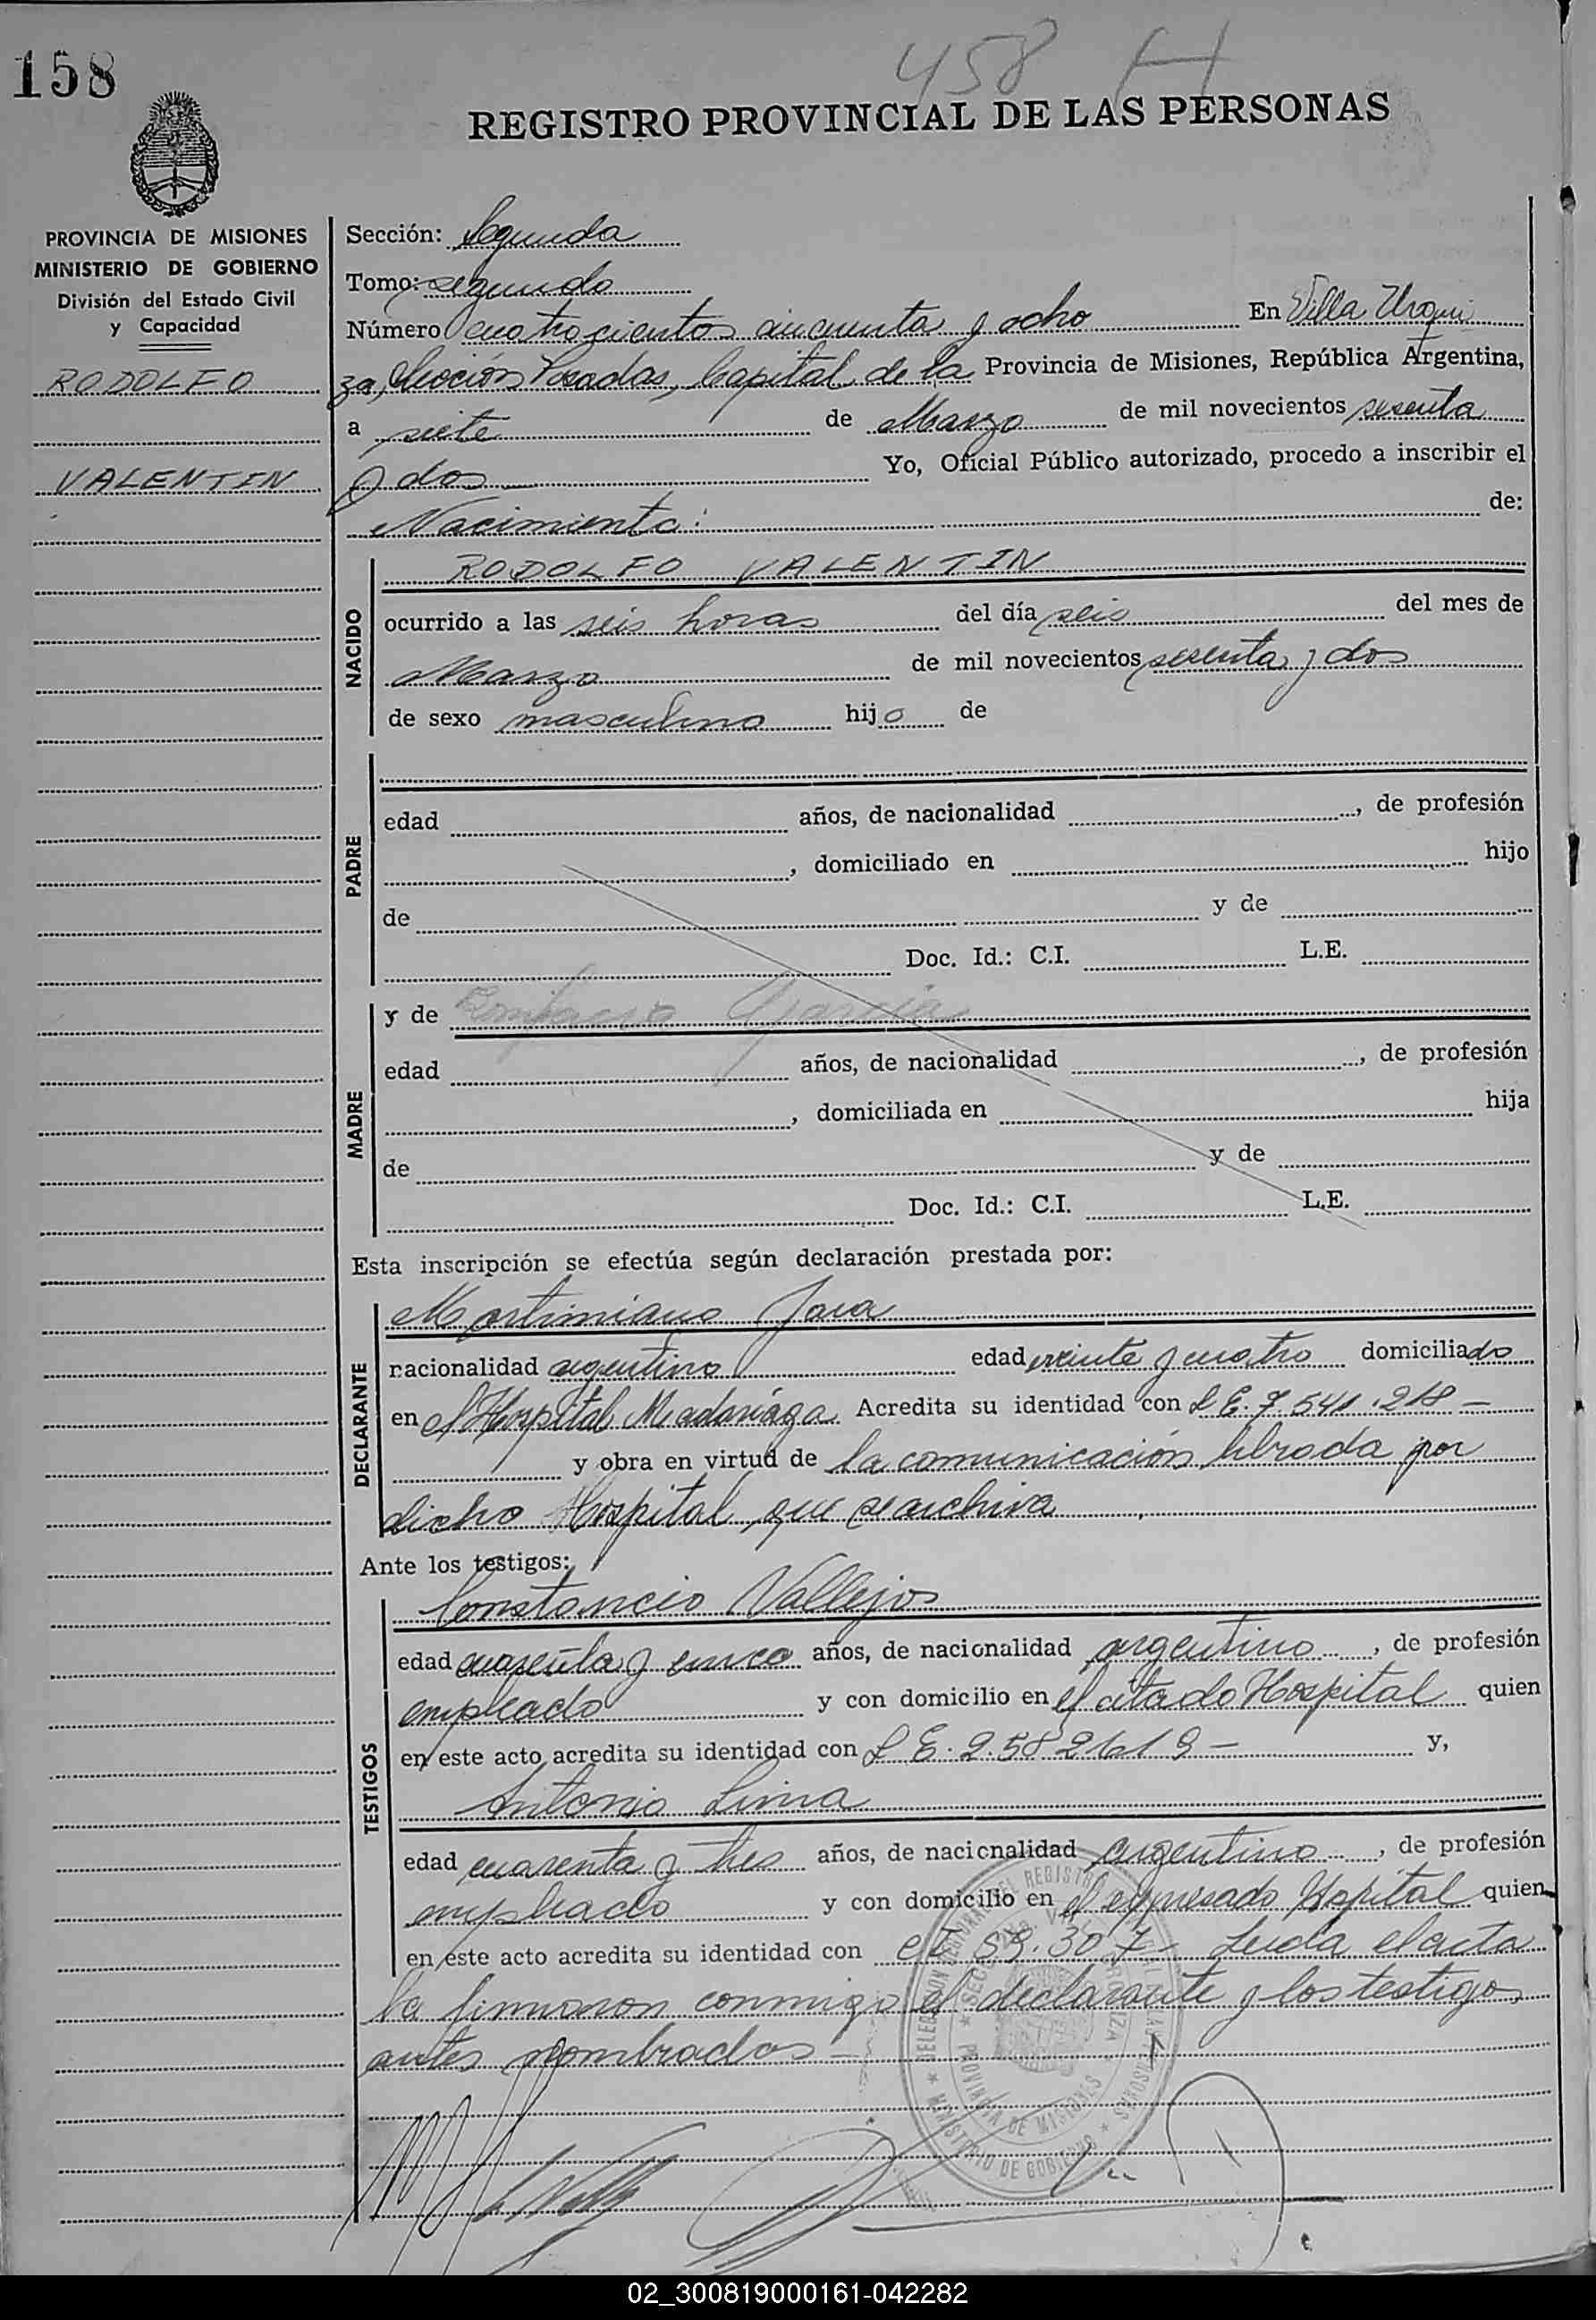 158
458 H
REGISTRO PROVINCIAL DE LAS PERSONAS
PROVINCIA DE MISIONES
MINISTERIO DE GOBIERNO
División del Estado Civil
y Capacidad
RODOLFO
VALENTIN
Sección: Segunda
Tomo: segundo
Número cuatrocientos cincuenta y ocho En Villa Urqui
za, Sección Posadas, Capital de la Provincia de Misiones, República Argentina,
a siete de Marzo de mil novecientos sesenta
y dos Yo, Oficial Público autorizado, procedo a inscribir el
Nacimiento: de:
NACIDO
RODOLFO VALENTIN
ocurrido a las seis horas del día seis del mes de
Marzo de mil novecientos sesenta y dos
de sexo masculino hijo de
PADRE
edad años, de nacionalidad , de profesión
, domiciliado en hijo
de y de
Doc. Id.: C.I. L.E.
MADRE
y de Bonifacia Garcia
edad años, de nacionalidad , de profesión
, domiciliada en hija
de y de
Doc. Id.: C.I. L.E.
Esta inscripción se efectúa según declaración prestada por:
DECLARANTE
Martiniano Jara
nacionalidad argentino edad veinte y cuatro domiciliado
en el Hospital Madariaga. Acredita su identidad con L E. 7.541.218 —
y obra en virtud de la comunicación librada por
dicho Hospital, que se archiva
Ante los testigos:
TESTIGOS
Constancio Vallejos
edad cuarenta y cinco años, de nacionalidad argentino, de profesión
empleado y con domicilio en el citado Hospital quien
en este acto acredita su identidad con L E. 2.582619 — y,
Antonio Lima
edad cuarenta y tres años, de nacionalidad argentino, de profesión
empleado y con domicilio en el expresado Hospital quien
en este acto acredita su identidad con C I 59.307 — Leida el acta
la firmaron conmigo el declarante y los testigos
antes nombrados —
PROVINCIA DE MISIONES
MINISTERIO DE GOBIERNO
02_300819000161-042282